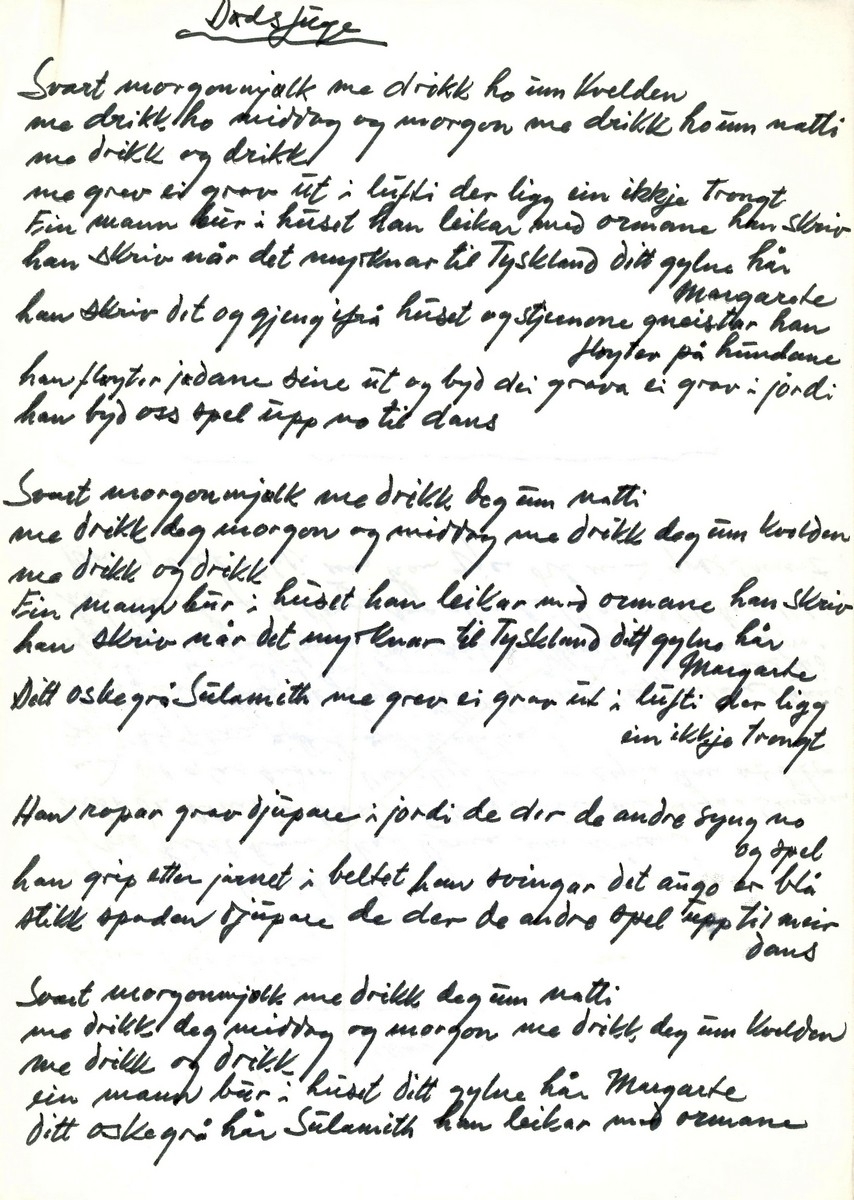 Dødsfuge
Svart morgonmjølk me drikk ho um kvelden
me drikk ho middag og morgon me drikk ho um natti
me drikk og drikk
me grev ei grav ut i lufti der ligg ein ikkje trongt
Ein mann bur i huset han leikar med ormane han skriv
han skriv når det myrknar til Tyskland ditt gylne hår
Margarete
han skriv det og gjeng ifrå huset og stjernone gneistar han
fløyter på hundane
han fløyter jødane sine ut og byd dei grava ei grav i jordi
han byd oss spel upp no til dans
Svart morgonmjølk me drikk deg um natti
me drikk deg morgon og middag me drikk deg um kvelden
me drikk og drikk
Ein mann bur i huset han leikar med ormane han skriv
han skriv når det myrknar til Tyskland ditt gylne hår
Margarete
Ditt oskegrå Sulamith me grev ei grav ut i lufti der ligg
ein ikkje trongt
Han ropar grav djupare i jordi de der de andre syng no
og spel
han grip etter jarnet i beltet han svingar det augo er blå
stikk spaden djupare de der de andre spel upp til meir
dans
Svart morgonmjølk me drikk deg um natti
me drikk deg middag og morgon me drikk deg um kvelden
me drikk og drikk
ein mann bur i huset ditt gylne hår Margarete
ditt oskegrå hår Sulamith han leikar med ormane